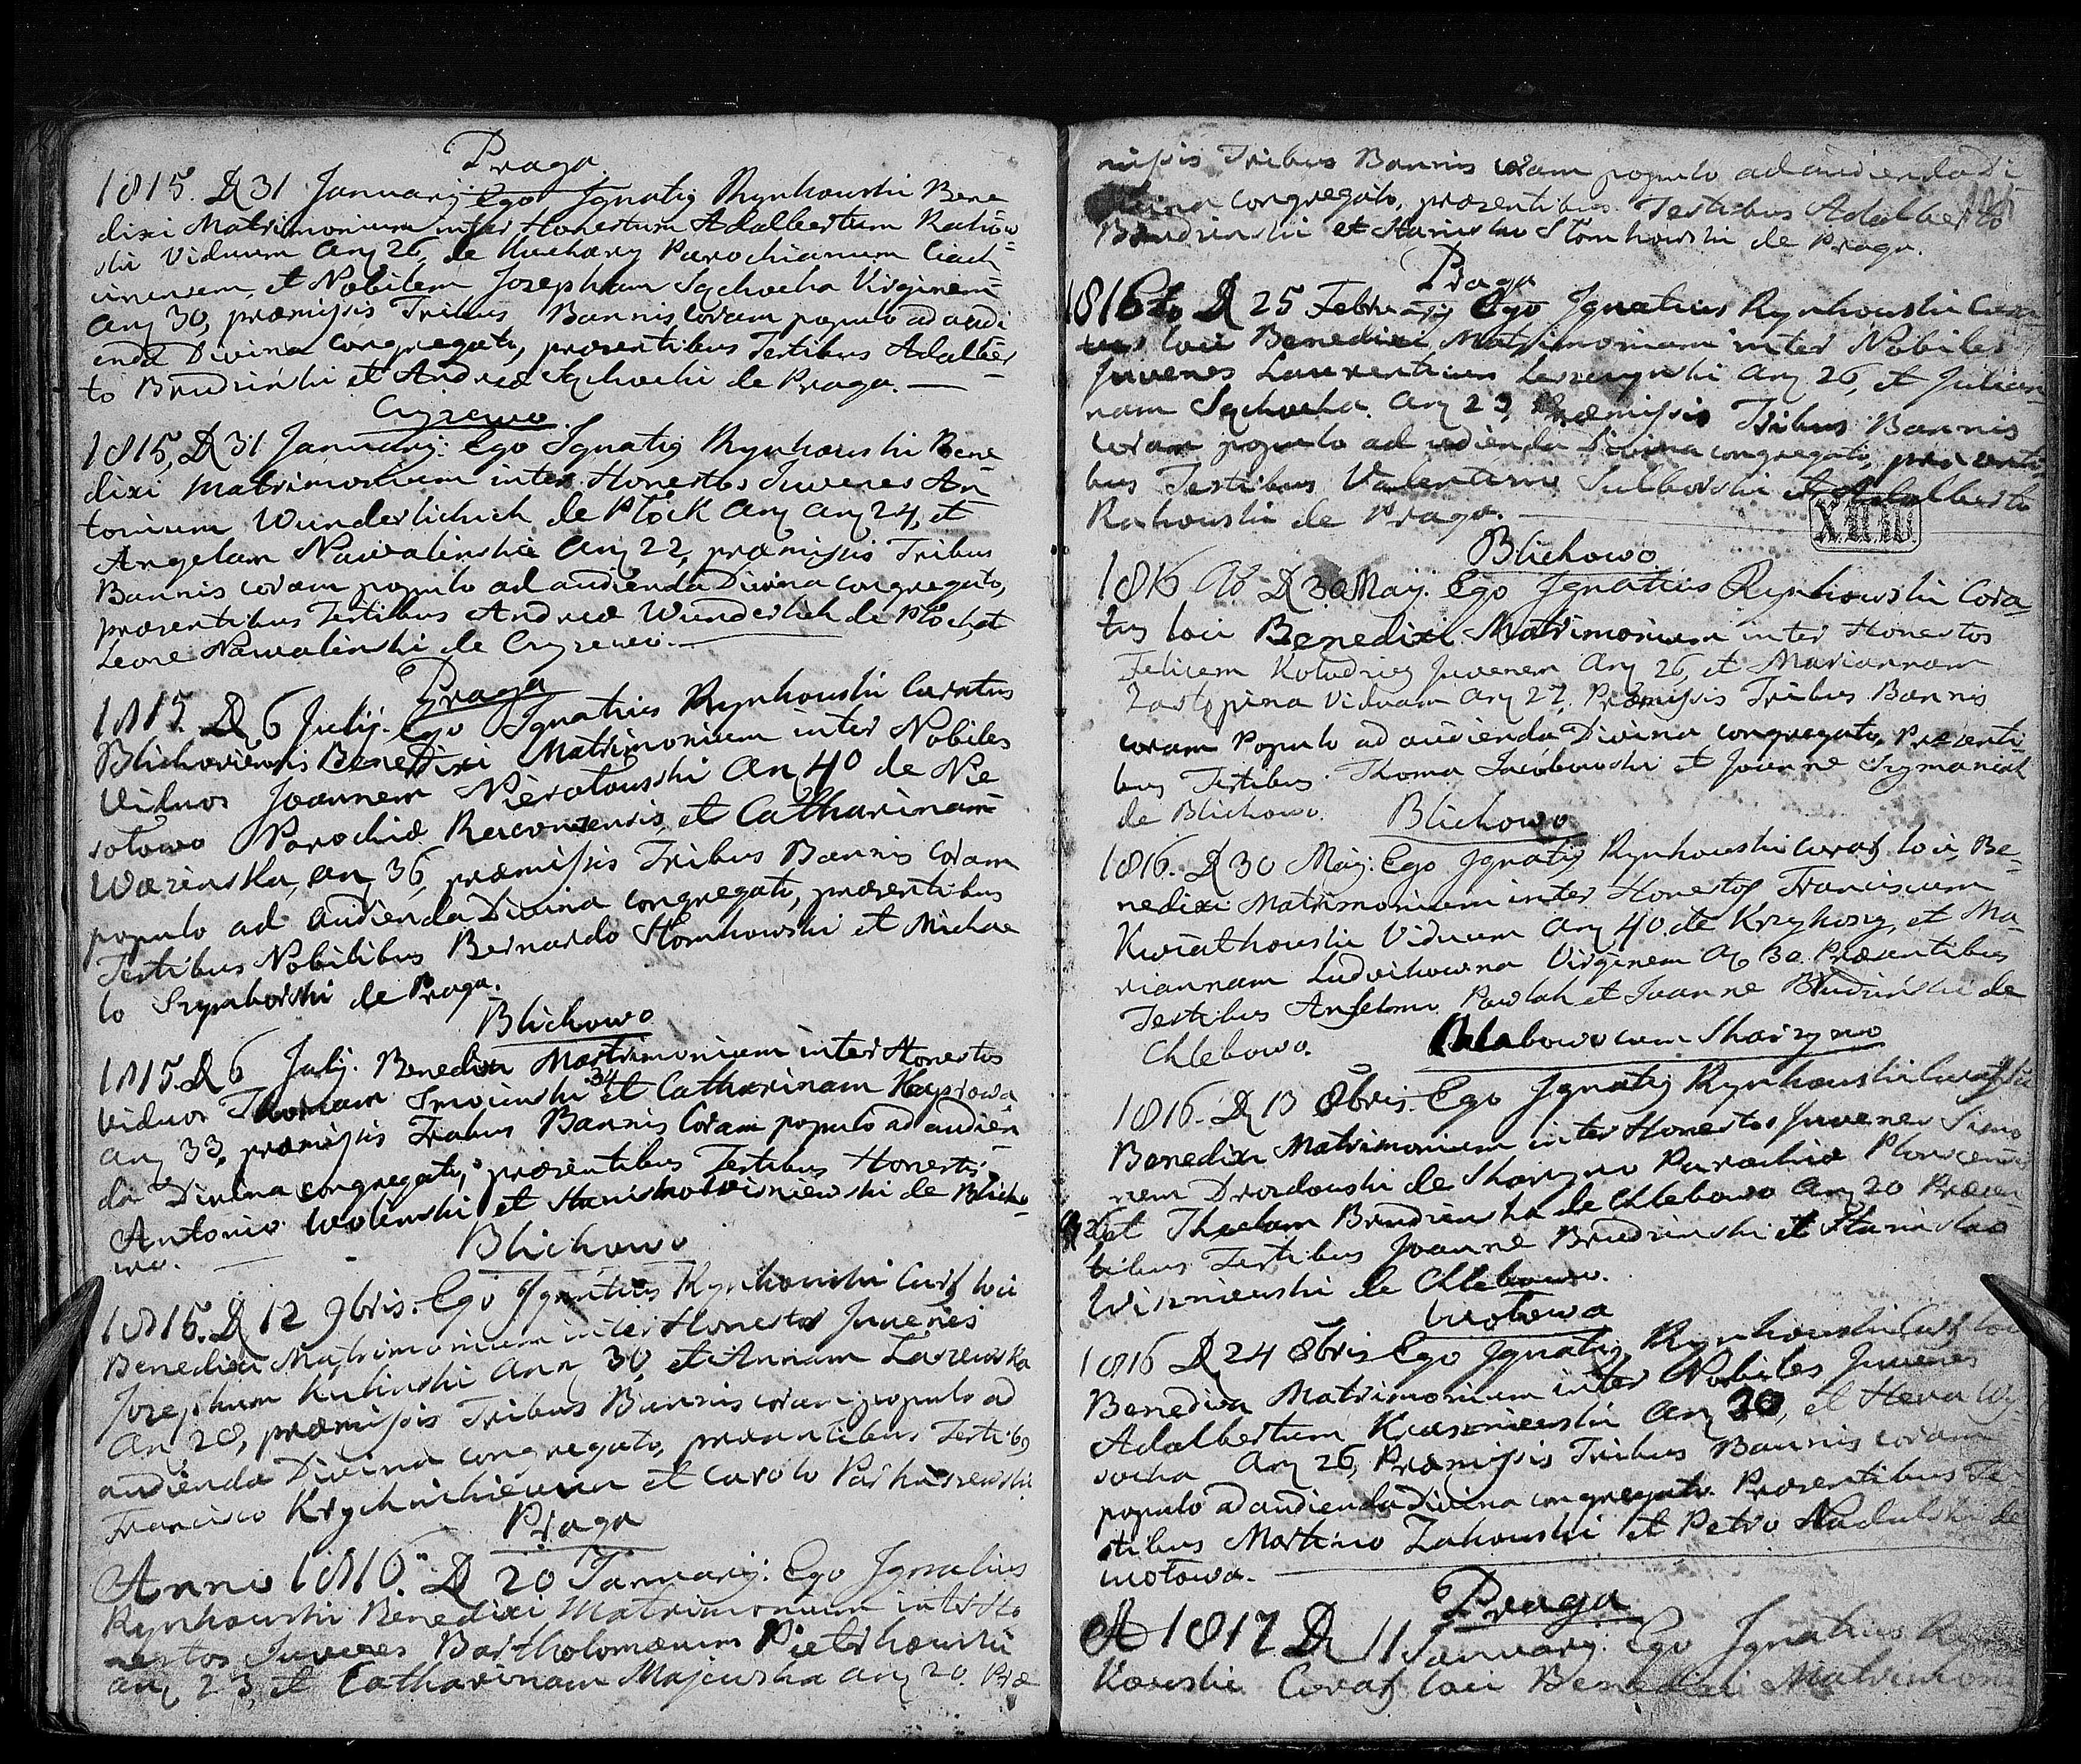 Praga
1815. D 31 Januarij Ego Ignatiq Rynkowski Bene
dixi Matrimonium inter Honestum Adalbertum Rakow
ski Viduum Anq 26, de Kuchary Parochianum Ciach
cinensem, et Nobilem Josepham Sqchocka Virginem
Anq 30, præmissis Tribus Bannis coram populo ad audi
enda Divina congregato, præsentibus Testibus Adalber
to Brudziński et Andreæ Sqchocki de Praga.
Cyzewo
1815, D 31 Januarij. Ego Ignatiq Rynkowski Bene
dixi Matrimonium inter Honestos Juvenes An
tonium Wunderlichich de Plock Anq Anq 24, et
Angelam Nawalinska Anq 22, præmissis Tribus
Bannis coram populo ad audienda Divina congregato,
præsentibus Testibus Andreæ Wunderlich de Plock, et
Leone Nawalinski de Cyzewo.
Praga
1815. D 6 Julij. Ego Ignatius Rynkowski Curatus
Blichoviensis Benedixi Matrimonium inter Nobiles
Viduos Joannem Nierotowski An 40 de Nie
sotowo Parochiæ et Catharinam
anq 36, præmissis Tribus Bannis coram
populo ad audienda Divina congregato, præsentibus
Testibus Nobilibus Bernardo Stomkowski et Michae
lo de Praga.
Blichowo
1815. D 6 Julij. Benedixi Matrimonium inter Honestos
viduos Thomam 34 et Catharinam
anq 33, præmissis Tribus Bannis Coram populo ad audien
da Divina congregato, præsentibus Testibus Honestis
Antonio Wolinski et Stanislao Wisniewski de Blicho
wo.
Blichowo
1815. D 12 9bris. Ego Ignatius Rynkowski Curq loci
Benedixi Matrimonium inter Honestos Juvenes
Josephum Kulinski Ann 30, et Annam
An 20, præmissis Tribus Bannis coram populo ad
audienda Divina congregato, præsentibus Testibq
Francisco et Carolo
Praga
Anno 1816. D 20 Januarij. Ego Ignatius
Rynkowski Benedixi Matrimonium inter Ho
nestos Juvenes Bartholomæum Pieterkowski
anq 23, et Catharinam Majewska anq 20. Præ
missis Tribus Bannis coram populo ad audienda Di
vina congregato, præsentibus Testibus Adalberto
Brudzinski et Stanislao Stomkowski de Praga.
Praga
1816to D 25 Februarij Ego Ignatius Rynkowski Cura
tus loci Benedixi Matrimonium inter Nobiles
Juvenes Laurentium Anq 26, et Julian
nam Sqchocka. Anq 23, Præmissis Tribus Bannis
coram populo ad audienda Divina congregato, præsenti
bus Testibus Valentino Sulborski et Adalberto
Rakowski de Praga.
Blichowo
1816 D 30 Maij. Ego Ignatius Rynkowski Cura
tus loci Benedixi Matrimonium inter Honestos
Felicem Kolodziey Juvenem Anq 26, et Mariannam
Viduam Anq 27. Præmissis Tribus Bannis
coram Populo ad audienda Divina congregato, Præsenti
bus Testibus Thoma Jacobowski et Joanne Szymaniak
de Blichowo.
Blichowo
1816. D 30 Maij. Ego Ignatiq Rynkowski Curatq loci, Be
nedixi Matrimonium inter Honestos Franciscum
Kwiatkowski Viduum Anq 40 de Krzykosy, et Ma
riannam Ludvikowna Virginem Aq 30. Præsentibus
Testibus Anselmo Pawlak et Joanne Brudzinski de
Chlebowo.
Chlebowo cum Skarzyno
1816. D 13 8bris. Ego Ignatiq Rynkowski Curatq loci
Benedixi Matrimonium inter Honestos Juvenes Simo
nem Drozdowski de Skarzyno Parochiæ
Aq 26 et Theclam Brudzinska de Chlebowo Anq 20 Præsen
tibus Testibus Joanne Brudzinski et Stanislao
Wiszniewski de Chlebowo.
Wotowa
1816 D 24 8bris Ego Ignatiq Rynkowski Curq loci
Benedixi Matrimonium inter Nobiles Juvenes
Adalbertum Krasniewski Anq 30, et Wy
socka Anq 26, Præmissis Tribus Bannis coram
populo ad audienda Divina congregato. Præsentibus Te
stibus Martino Zakowski et Petro Nadulski de
Wotowa.
Praga
A 1817 D 11 Januarij. Ego Ignatius Ryn
kowski Curatq loci Benedixi Matrimoni